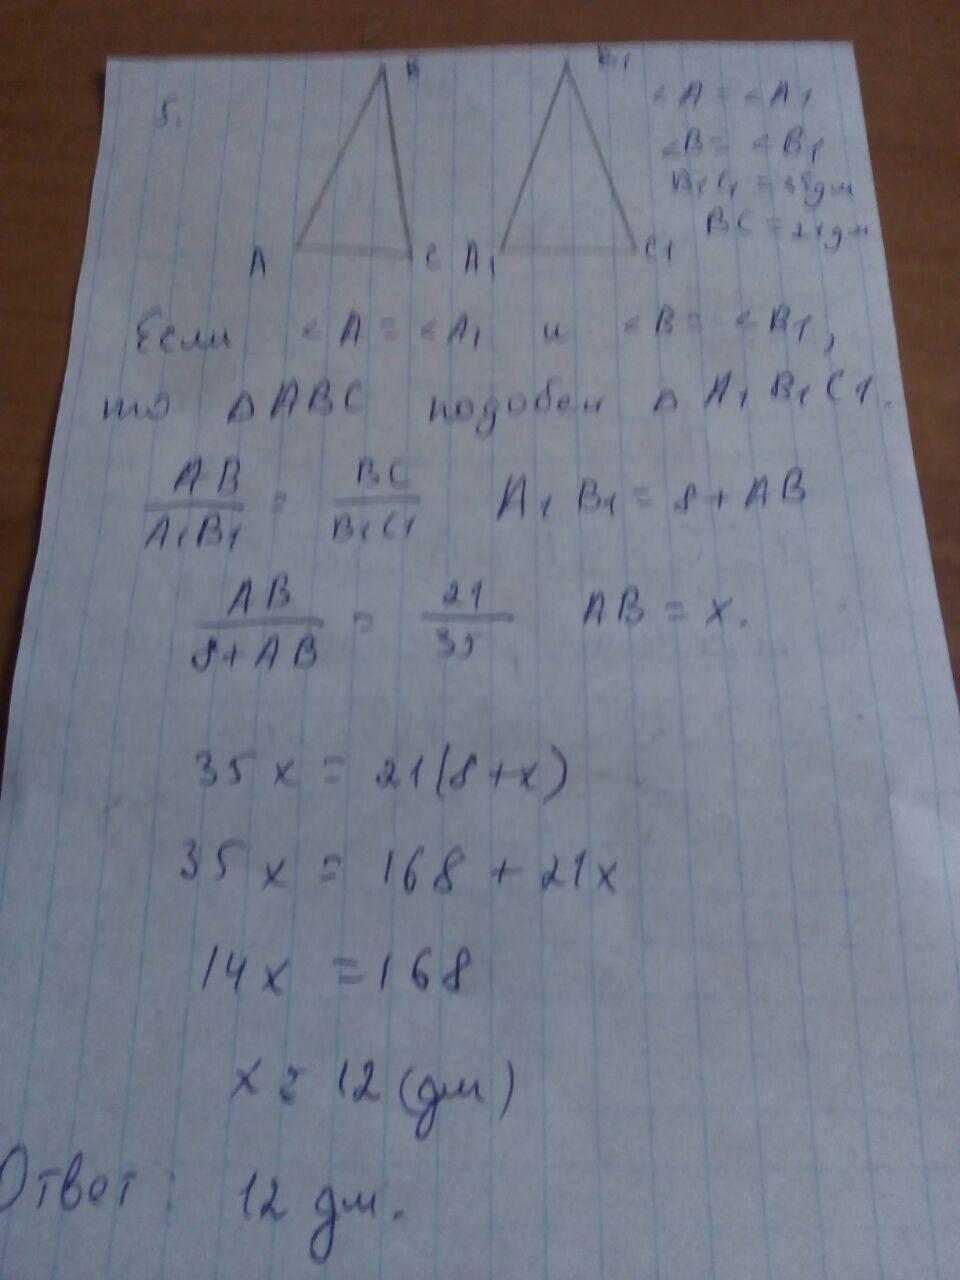 5.
B
B1
∠A = ∠A1
∠B = ∠B1
B1C1 = 35дм
BC = 21дм
A
C
A1
C1
Если ∠A = ∠A1 и ∠B = ∠B1,
то ΔABC подобен Δ A1B1C1.
AB/A1B1 = BC/B1C1 A1B1 = 8 + AB
AB/8+AB = 21/35 AB = x.
35x = 21(8+x)
35x = 168 + 21x
14x = 168
x = 12 (дм)
Ответ: 12 дм.